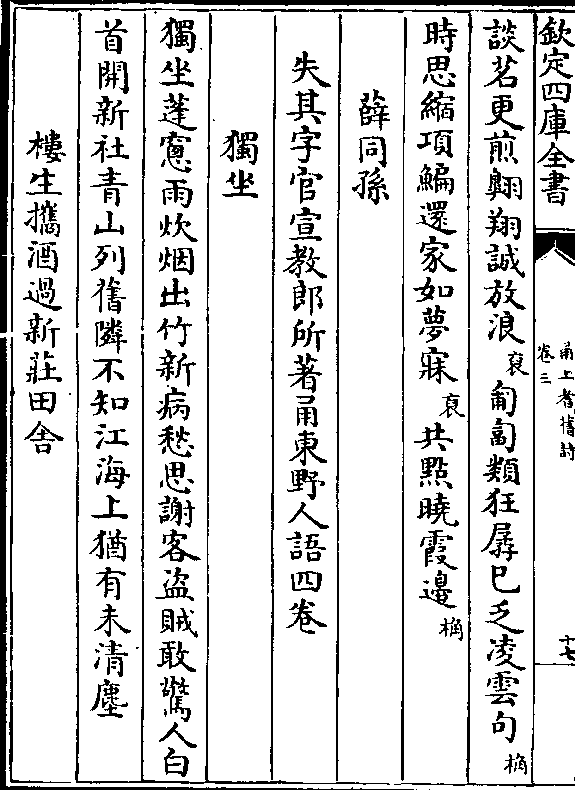 欽定四庫全書
甬上耆舊詩
卷三
十七
談茗更煎翺翔誠放浪裒匍匐類狂孱已乏凌雲句桷
時思縮項鯿還家如夢寐裒共㸃曉霞邉桷
薛同孫
失其字官宣教郎所著甬東野人語四卷
獨坐
獨坐蓬窻雨炊烟出竹新病愁思謝客盗賊敢驚人白
首開新社青山列舊隣不知江海上猶有未清塵
樓生攜酒過新莊田舎